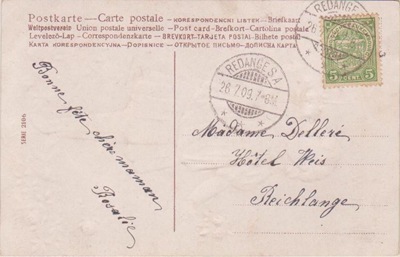 Postkarte — Carte postale — KORRESPONDENCNI LISTEK — Briefkaart
Weltpostverein Union postale universelle — Post card - Brefkort - Cartolina postale
Levelező-Lap - Correspondenzkarte — BREVKORT-TARJETA POSTAL - Bilhete postal
KARTA KORRESPONDENCYJNA - DOPISNICE — ОТКРЫТОЕ ПИСЬМО - ДОПИСНА КАРТА
REDANGE
26
5 CENTS 5
REDANGE S.A.
26.7.09. 7-8M.
Bonne fête chère maman
Rosalie
Madame Delleré
Hôtel Weis
Reichlange
SERIE 2106